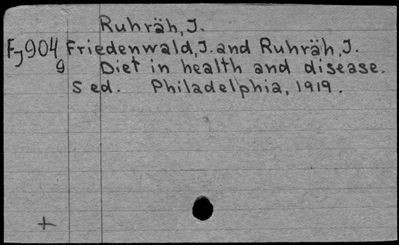 Ruhräh, J.
Fj904 Friedenwald, J. and Ruhräh, J.
9 Diet in health and disease.
5 ed. Philadelphia, 1919.
+